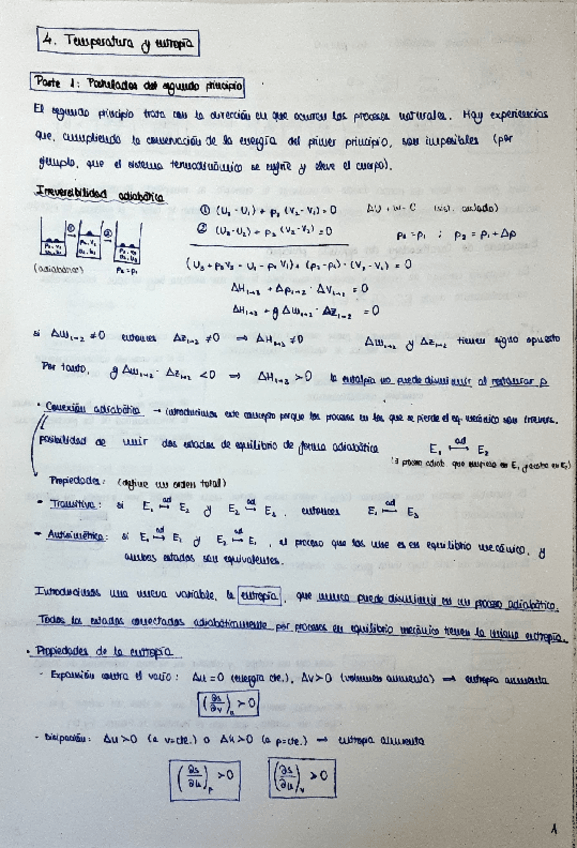 4. Temperatura y entropía
Parte 1: Postulados del segundo principio
El segundo principio trata con la dirección en que ocurren los procesos naturales. Hay experiencias
que, cumpliendo la conservación de la energía del primer principio, son imposibles (por
ejemplo, que el sistema termodinámico se enfríe y eleve el cuerpo).
Irreversibilidad adiabática
① (U₂ - U₁) + p₂ (V₂ - V₁) = 0
② (U₃ - U₂) + p₃ (V₃ - V₂) = 0
p₃ = p₁ ; p₂ = p₁ + Δp
(adiabático) p₃ = p₁
(U₃ + p₃V₃ - U₁ - p₁V₁) + (p₂ - p₁) · (V₂ - V₁) = 0
ΔH₁→₃ + Δp₁→₂ · ΔV₁→₂ = 0
ΔH₁→₃ + g Δm₁→₂ · Δz₁→₂ = 0
si Δm₁→₂ ≠ 0 entonces Δz₁→₂ ≠ 0 ⟹ ΔH₁→₃ ≠ 0 Δm₁→₂ y Δz₁→₂ tienen signo opuesto
Por tanto, g Δm₁→₂ · Δz₁→₂ < 0 ⟹ ΔH₁→₃ > 0 la entalpía no puede disminuir al restaurar p
· Conexión adiabática → introducimos este concepto porque los procesos en los que se pierde el eq. mecánico son irrevers.
posibilidad de unir dos estados de equilibrio de forma adiabática E₁ ad⟼ E₂
(∃ proceso adiab. que empieza en E₁ y acaba en E₂)
Propiedades: (define un orden total)
- Transitiva: si E₁ ad⟼ E₂ y E₂ ad⟼ E₃, entonces E₁ ad⟼ E₃
- Antisimétrica: si E₁ ad⟼ E₂ y E₂ ad⟼ E₁, el proceso que los une es en equilibrio mecánico, y
ambos estados son equivalentes.
Introducimos una nueva variable, la entropía, que nunca puede disminuir en un proceso adiabático.
Todos los estados conectados adiabáticamente por procesos en equilibrio mecánico tienen la misma entropía.
· Propiedades de la entropía
- Expansión contra el vacío: Δu = 0 (energía cte.), Δv > 0 (volumen aumenta) ⟹ entropía aumenta
(∂s/∂v)ᵤ > 0
- Disipación: Δu > 0 (a v=cte.) o Δh > 0 (a p=cte.) ⟹ entropía aumenta
(∂s/∂h)ₚ > 0 (∂s/∂u)ᵥ > 0
1